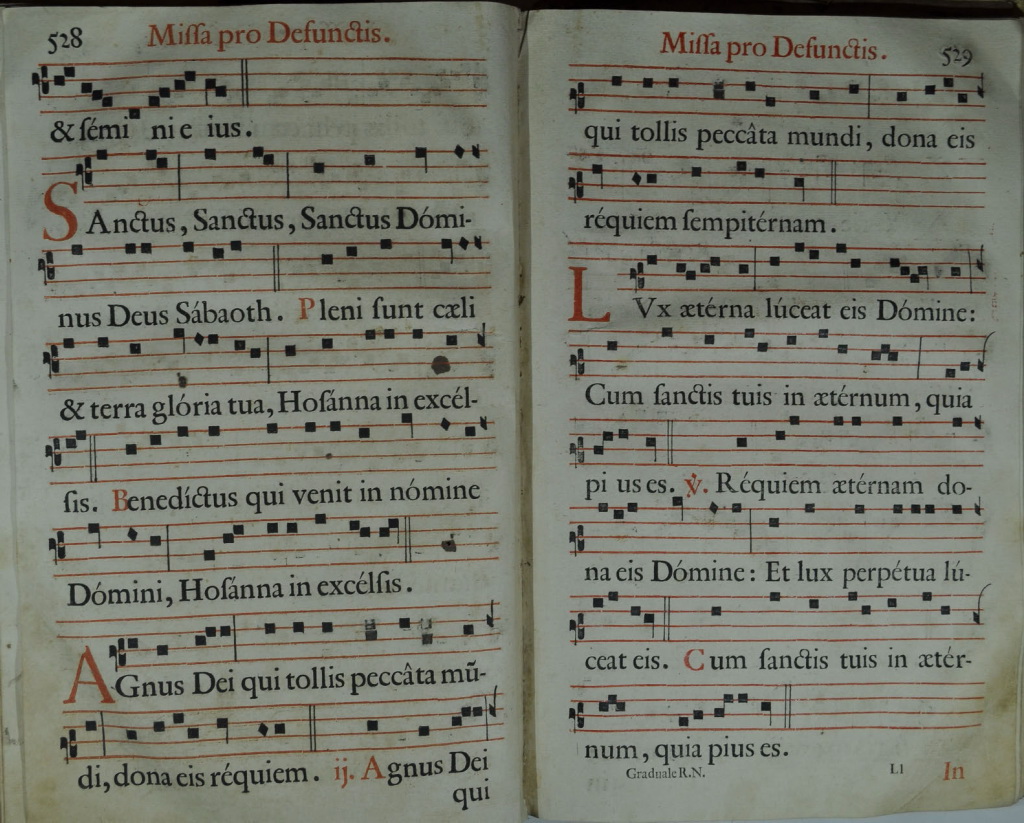 528 Miſſa pro Defunctis.
& ſémi ni e ius.
SAnctus, Sanctus, Sanctus Dómi-
nus Deus Sábaoth. Pleni ſunt cæli
& terra glória tua, Hoſánna in excél-
ſis. Benedíctus qui venit in nómine
Dómini, Hoſánna in excélſis.
AGnus Dei qui tollis peccâta mũ-
di, dona eis réquiem. ij. Agnus Dei
qui
Miſſa pro Defunctis. 529
qui tollis peccâta mundi, dona eis
réquiem ſempitérnam.
LVx ætérna lúceat eis Dómine:
Cum ſanctis tuis in ætérnum, quia
pi us es. ℣. Réquiem ætérnam do-
na eis Dómine: Et lux perpétua lú-
ceat eis. Cum ſanctis tuis in ætér-
num, quia pius es.
Graduale R.N. Ll In